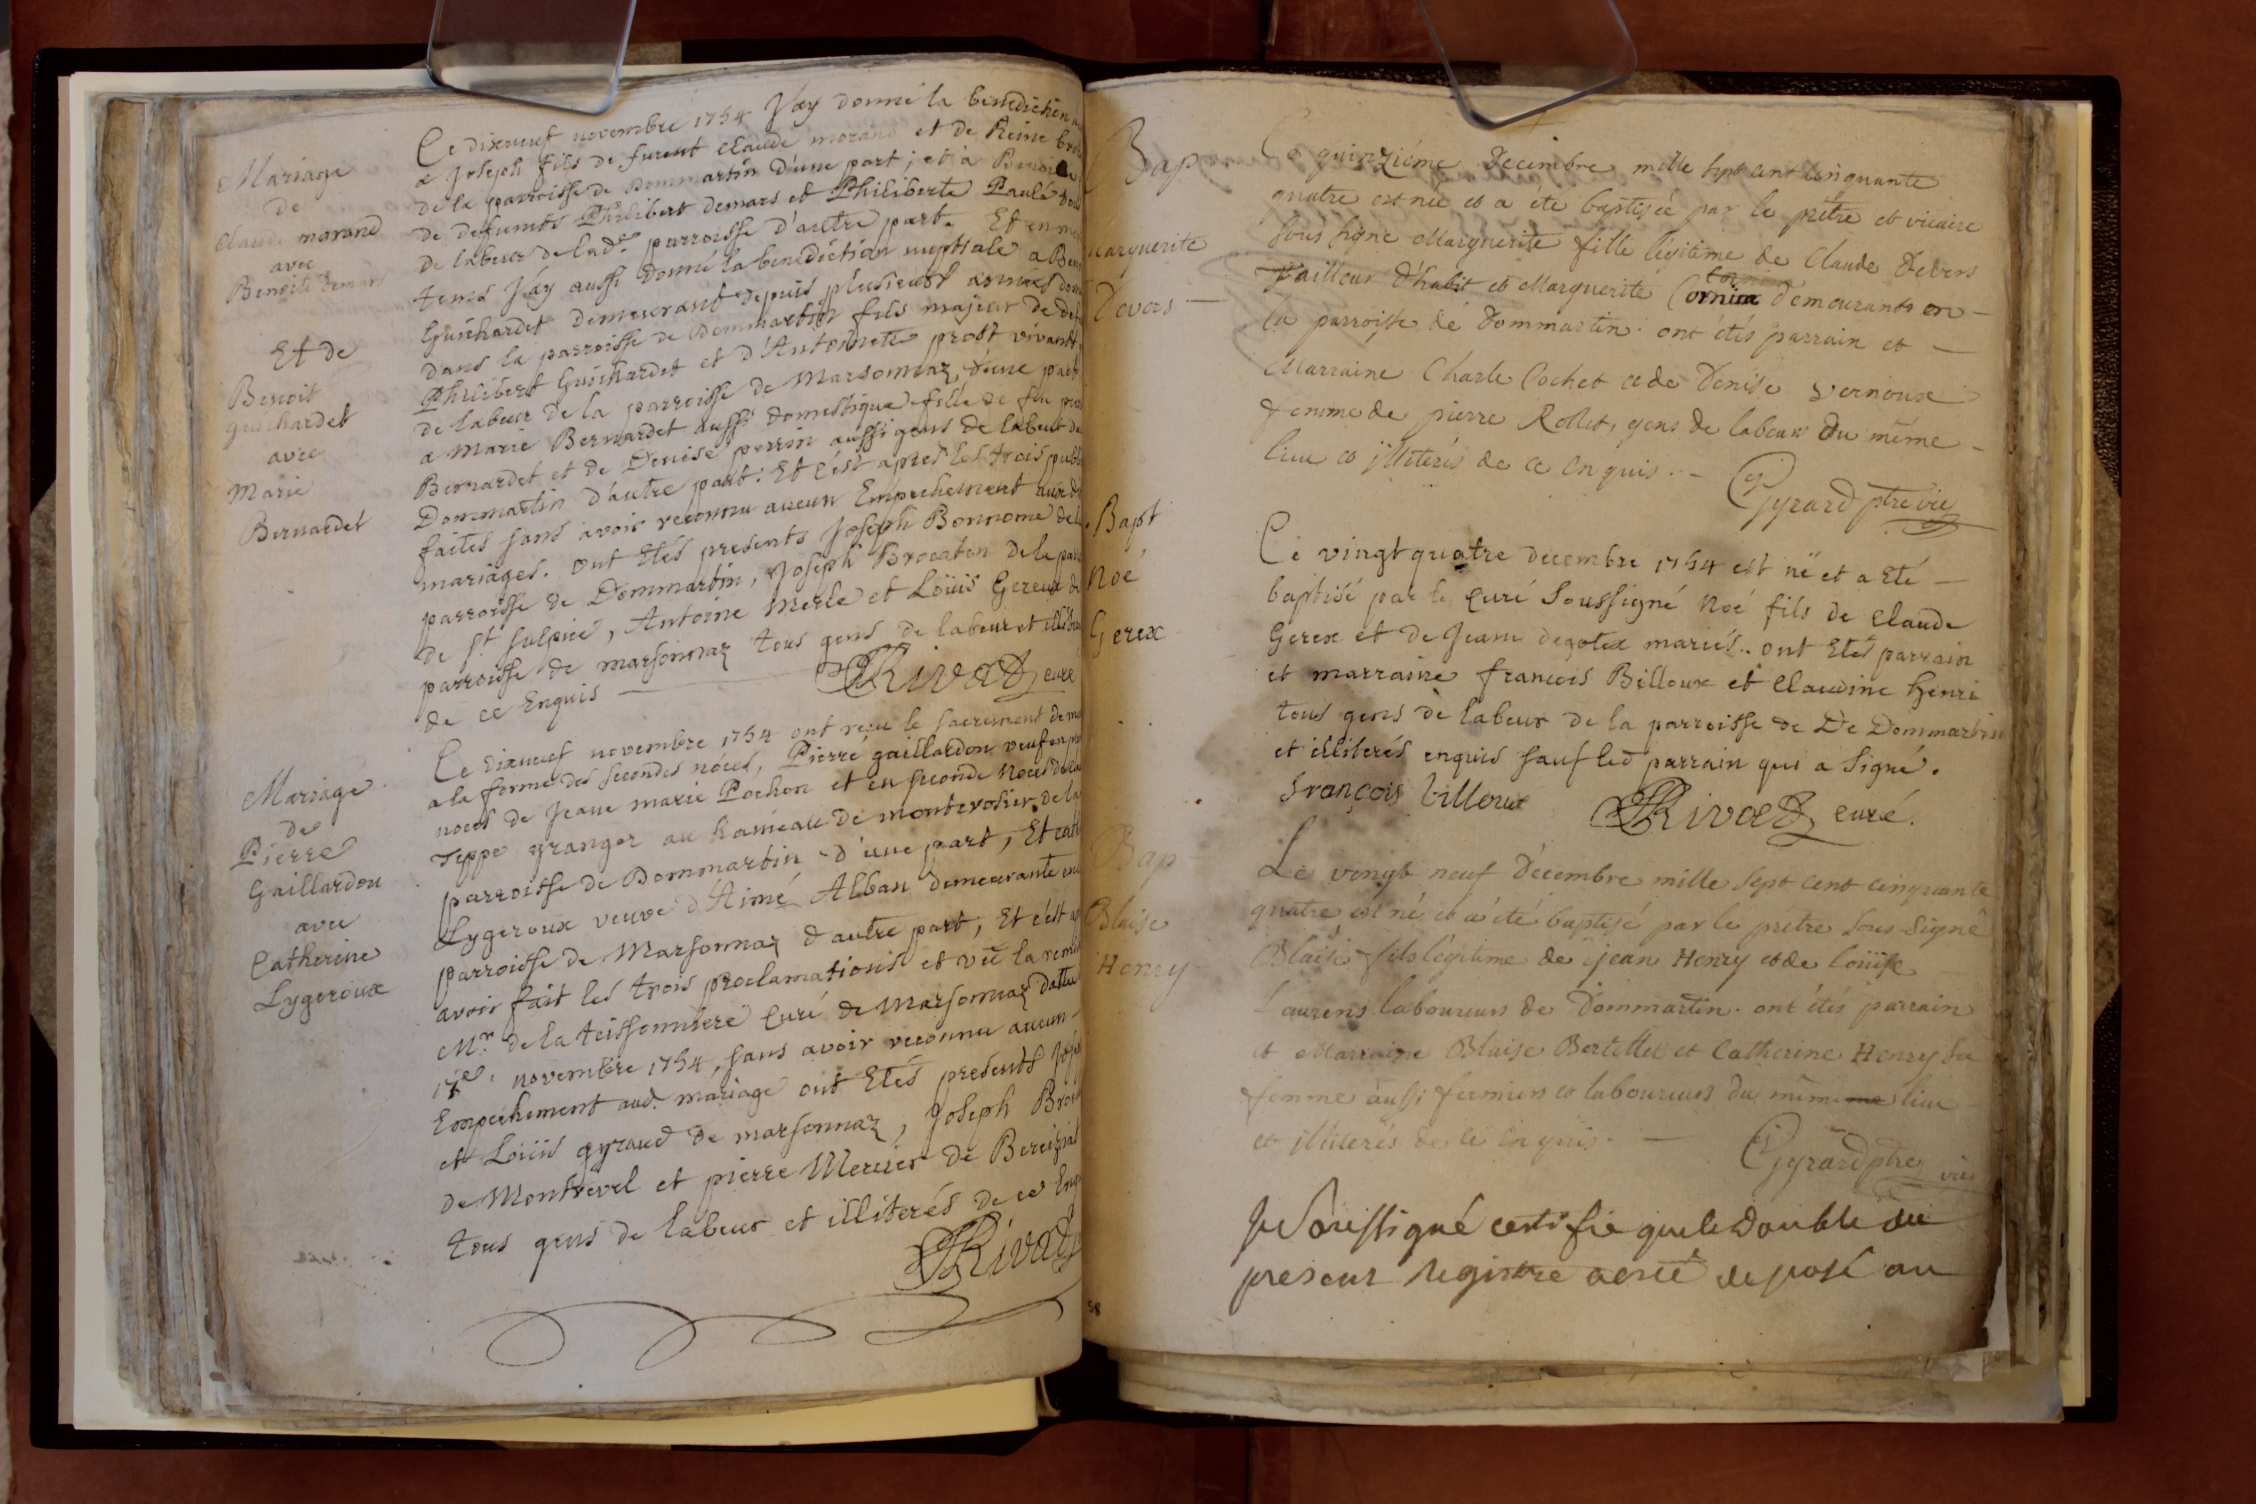 Mariage
de
Claude morand
avec
Benoite demars
Ce dixneuf novembre 1754 J'ay donné la benediction
a Joseph fils de furent claude morand et de Reine
de la parroisse de Dommartin d'une part; et a Benoite
de defunts Philibert demars et Philiberte Paule
de labeur de lad.e parroisse d'autre part. Et en
tems J'ay aussi donné la benediction nuptiale a
Et de
Benoit
guichardet
avec
Marie
Bernardet
Guichardet demeurant depuis plusieurs années
dans la parroisse de Dommartin fils majeur de
Philibert Guichardet et d'Antoinette prost vivants
de labeur de la parroisse de Marsonnaz d'une part
a Marie Bernardet aussi domestique fille de feu
Bernardet et de Denise perrin aussi gens de labeur de
Dommartin d'autre part. Et c'est apres les trois
faites sans avoir reconnu aucun Empechement
mariages. ont Etés presents Joseph Bonnome de
parroisse de Dommartin, Joseph Brocaton de la
de St sulpice, Antoine Merle et Loüis Gereux
parroisse de marsonnaz tous gens de labeur et
de ce Enquis
Rivat curé
Mariage
de
Pierre
Gaillardon
avec
Catherine
Lygeroux
Ce dixneuf novembre 1754 ont reçu le sacrement de
a la forme des secondes nôces, Pierre gaillardon veuf en
noces de Jeane marie Pochon et en seconde Noces de
Teppe granger au hameau de montcrosier de la
parroisse de Dommartin d'une part, Et
Lygeroux veuve d'Aimé Alban demeurante
parroisse de Marsonnaz d'autre part, Et c'est
avoir fait les trois proclamations et vû la
Mr. de la teissonniere Curé de Marsonnaz
17e. novembre 1754, sans avoir reconnu aucun
Empechement aud. mariage ont Etés presents
et Loüis gyraud de marsonnaz, Joseph
de Montrevel et pierre Mercier de Bereiziat
tous gens de labeur et illiterés de ce
Rivat
Bap
Marguerite
Devers
Ce quinziéme Decembre mille sept cent cinquante
quatre est née et a été baptisée par le prêtre et vicaire
sous signé Marguerite fille légitime de Claude Devers
Tailleur d'habit et Marguerite demeurants en
la parroisse de Dommartin. ont étés parrain et
Marraine Charle Cochet et de Denise vernoux
femme de pierre Rollet, gens de labeur du même
lieu et illiterés de ce Enquis.
Gyrard ptre vic
Bapt
Noé
Gerex
Ce vingt quatre decembre 1754 est né et a Eté
baptisé par le Curé Soussigné Noé fils de claude
Gerex et de Jeane degotex mariés. ont Etés parrain
et marraine françois Billoux et Claudine henri
tous gens de labeur de la parroisse de De Dommartin
et illiterés enquis sauf led parrain qui a signé.
françois billoux Rivat curé.
Bap
Blaise
Henry
Le vingt neuf Decembre mille sept cent cinquante
quatre est né et a été baptisé par le prêtre sous-signé
Blaise fils légitime de jean Henry et de Loüise
Laurens laboureurs de Dommartin. ont étés parrain
et Marraine Blaise Bertellet et Catherine Henry sa
femme aussi fermiers et laboureurs du même lieu
et illiterés de ce Enquis.
Gyrard ptre vic
Je Soussigné certifie que le Double du
present Registre a esté deposé au
58